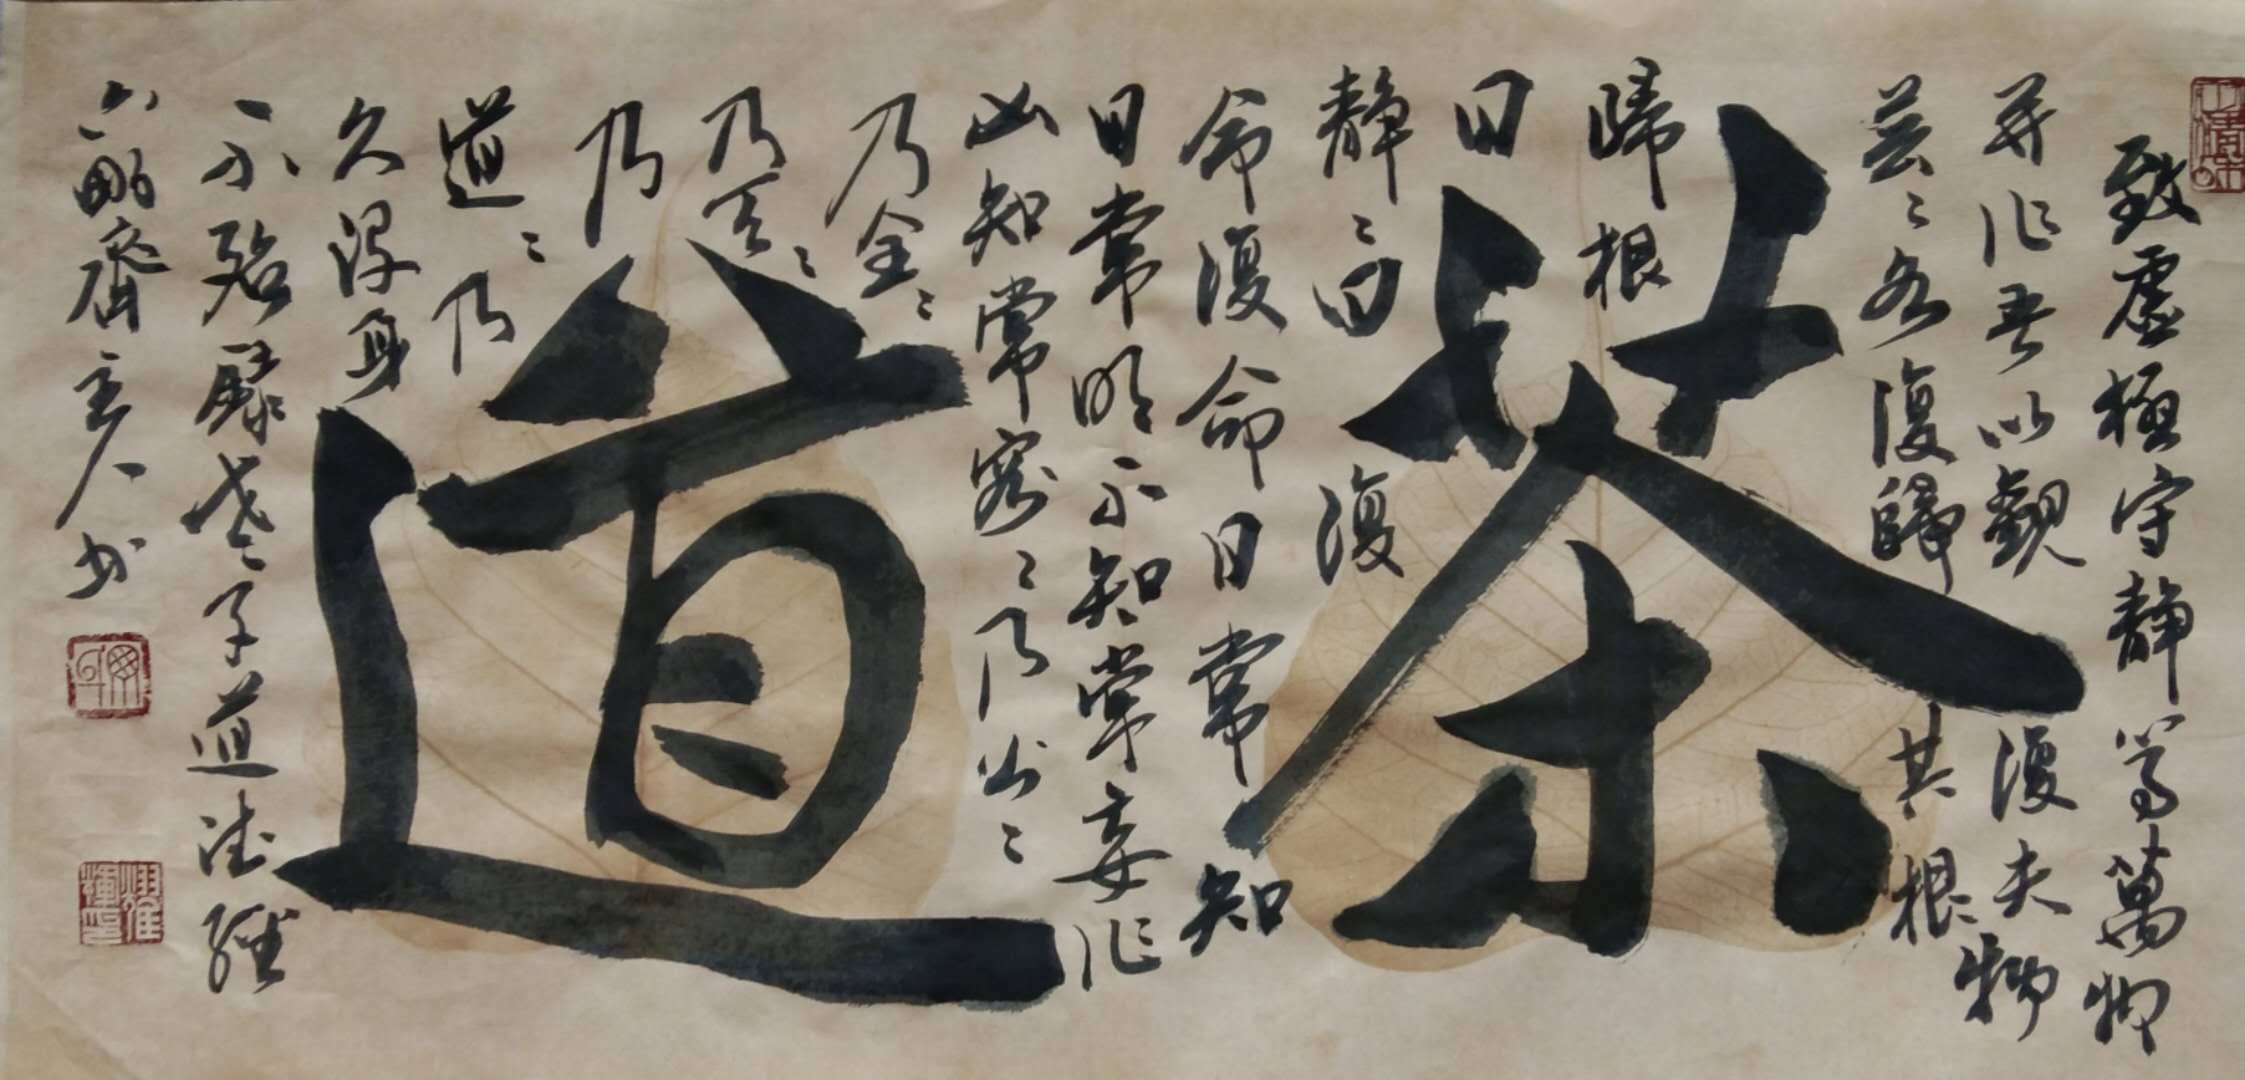 茶道
致虚極守静篤萬物
并作吾以觀復夫物
芸〻各復歸其根〻
歸根
曰
静〻曰復
命復命曰常知
曰常明不知常妄作
凶知常容〻乃公〻
乃全〻
乃天〻
乃
道〻乃
久没身
不殆録老子道德經
六畝齋主人书